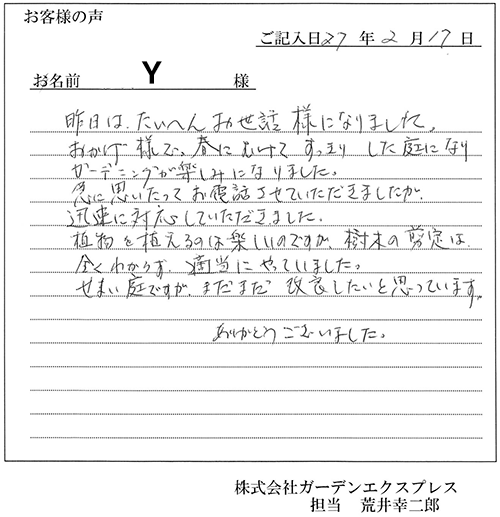 お客様の声
ご記入日27年2月17日
お名前 Y 様
昨日は、たいへんお世話様になりました。
おかげ様で、春にむけてすっきりした庭になり
ガーデニングが楽しみになりました。
急に思いたってお電話させていただきましたが、
迅速に対応していただきました。
植物を植えるのは楽しいのですが、樹木の剪定は、
全くわからず、適当にやっていました。
せまい庭ですが、まだまだ改良したいと思っています。
ありがとうございました。
株式会社ガーデンエクスプレス
担当 荒井幸二郎